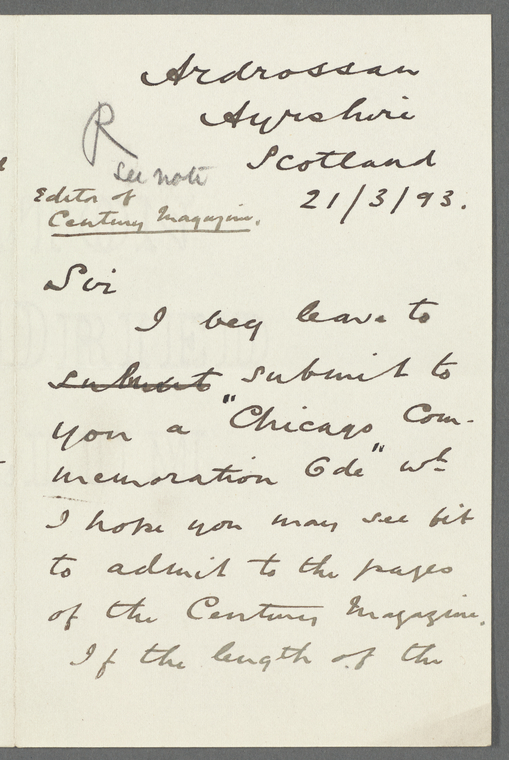 Ardrossan
Ayrshire
Scotland
21/3/93.
R
see note
Editor of
Century Magazine.
Sir
I beg leave to
submit submit to
you a "Chicago Com-
memoration Ode" wh
I hope you may see fit
to admit to the pages
of the Century Magazine.
If the length of the